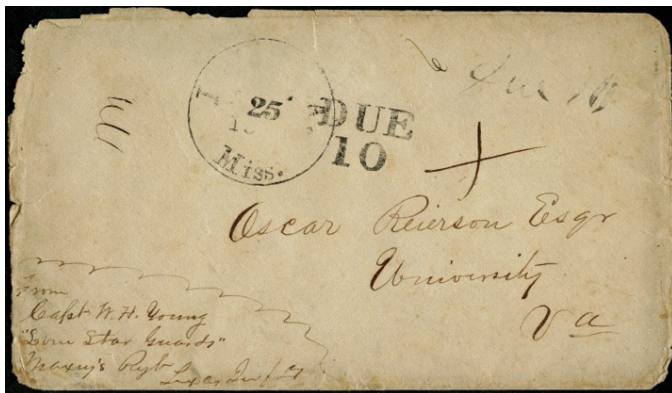 Due 10
25
DUE
10
Miss.
Oscar Reierson Esqr
University
Va
From
Capt. W. H. Young
"Lone Star Guards"
Maxey's Regt
Texas Infty